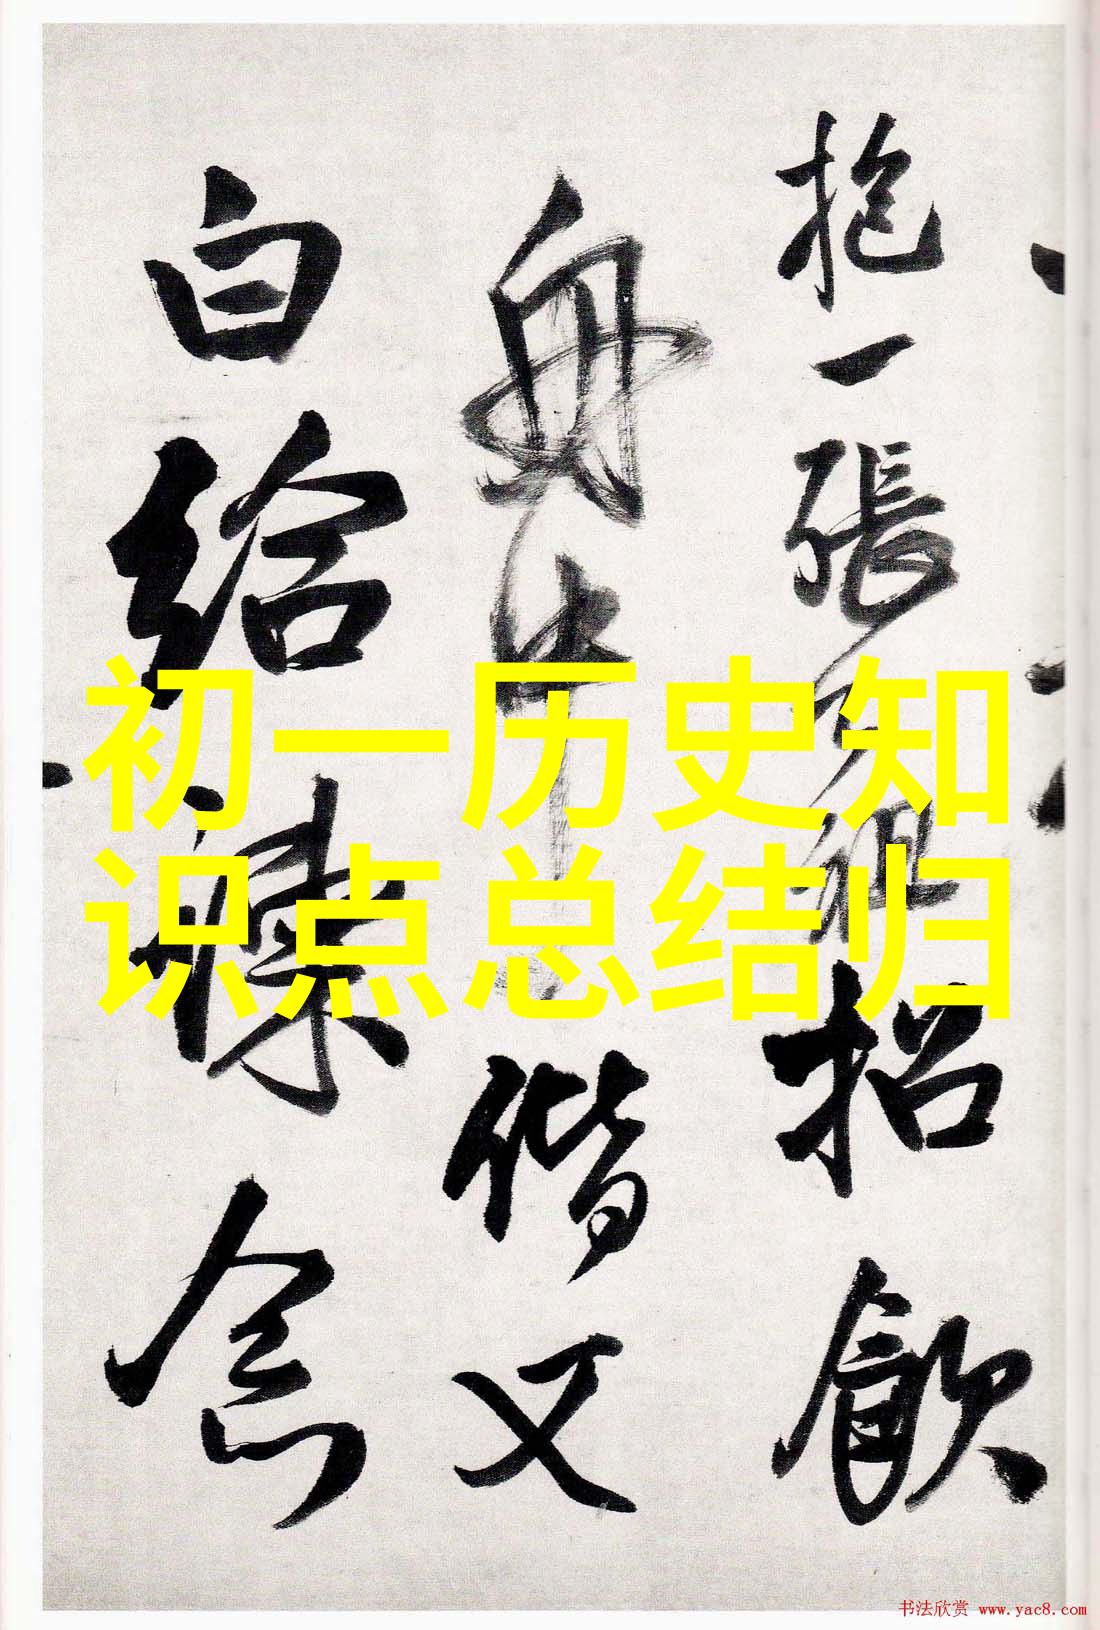 抱一張子祖招飲
舟中偕又
白給諫念
初一历史知
识点总结归
书法欣赏 www.yac8.com